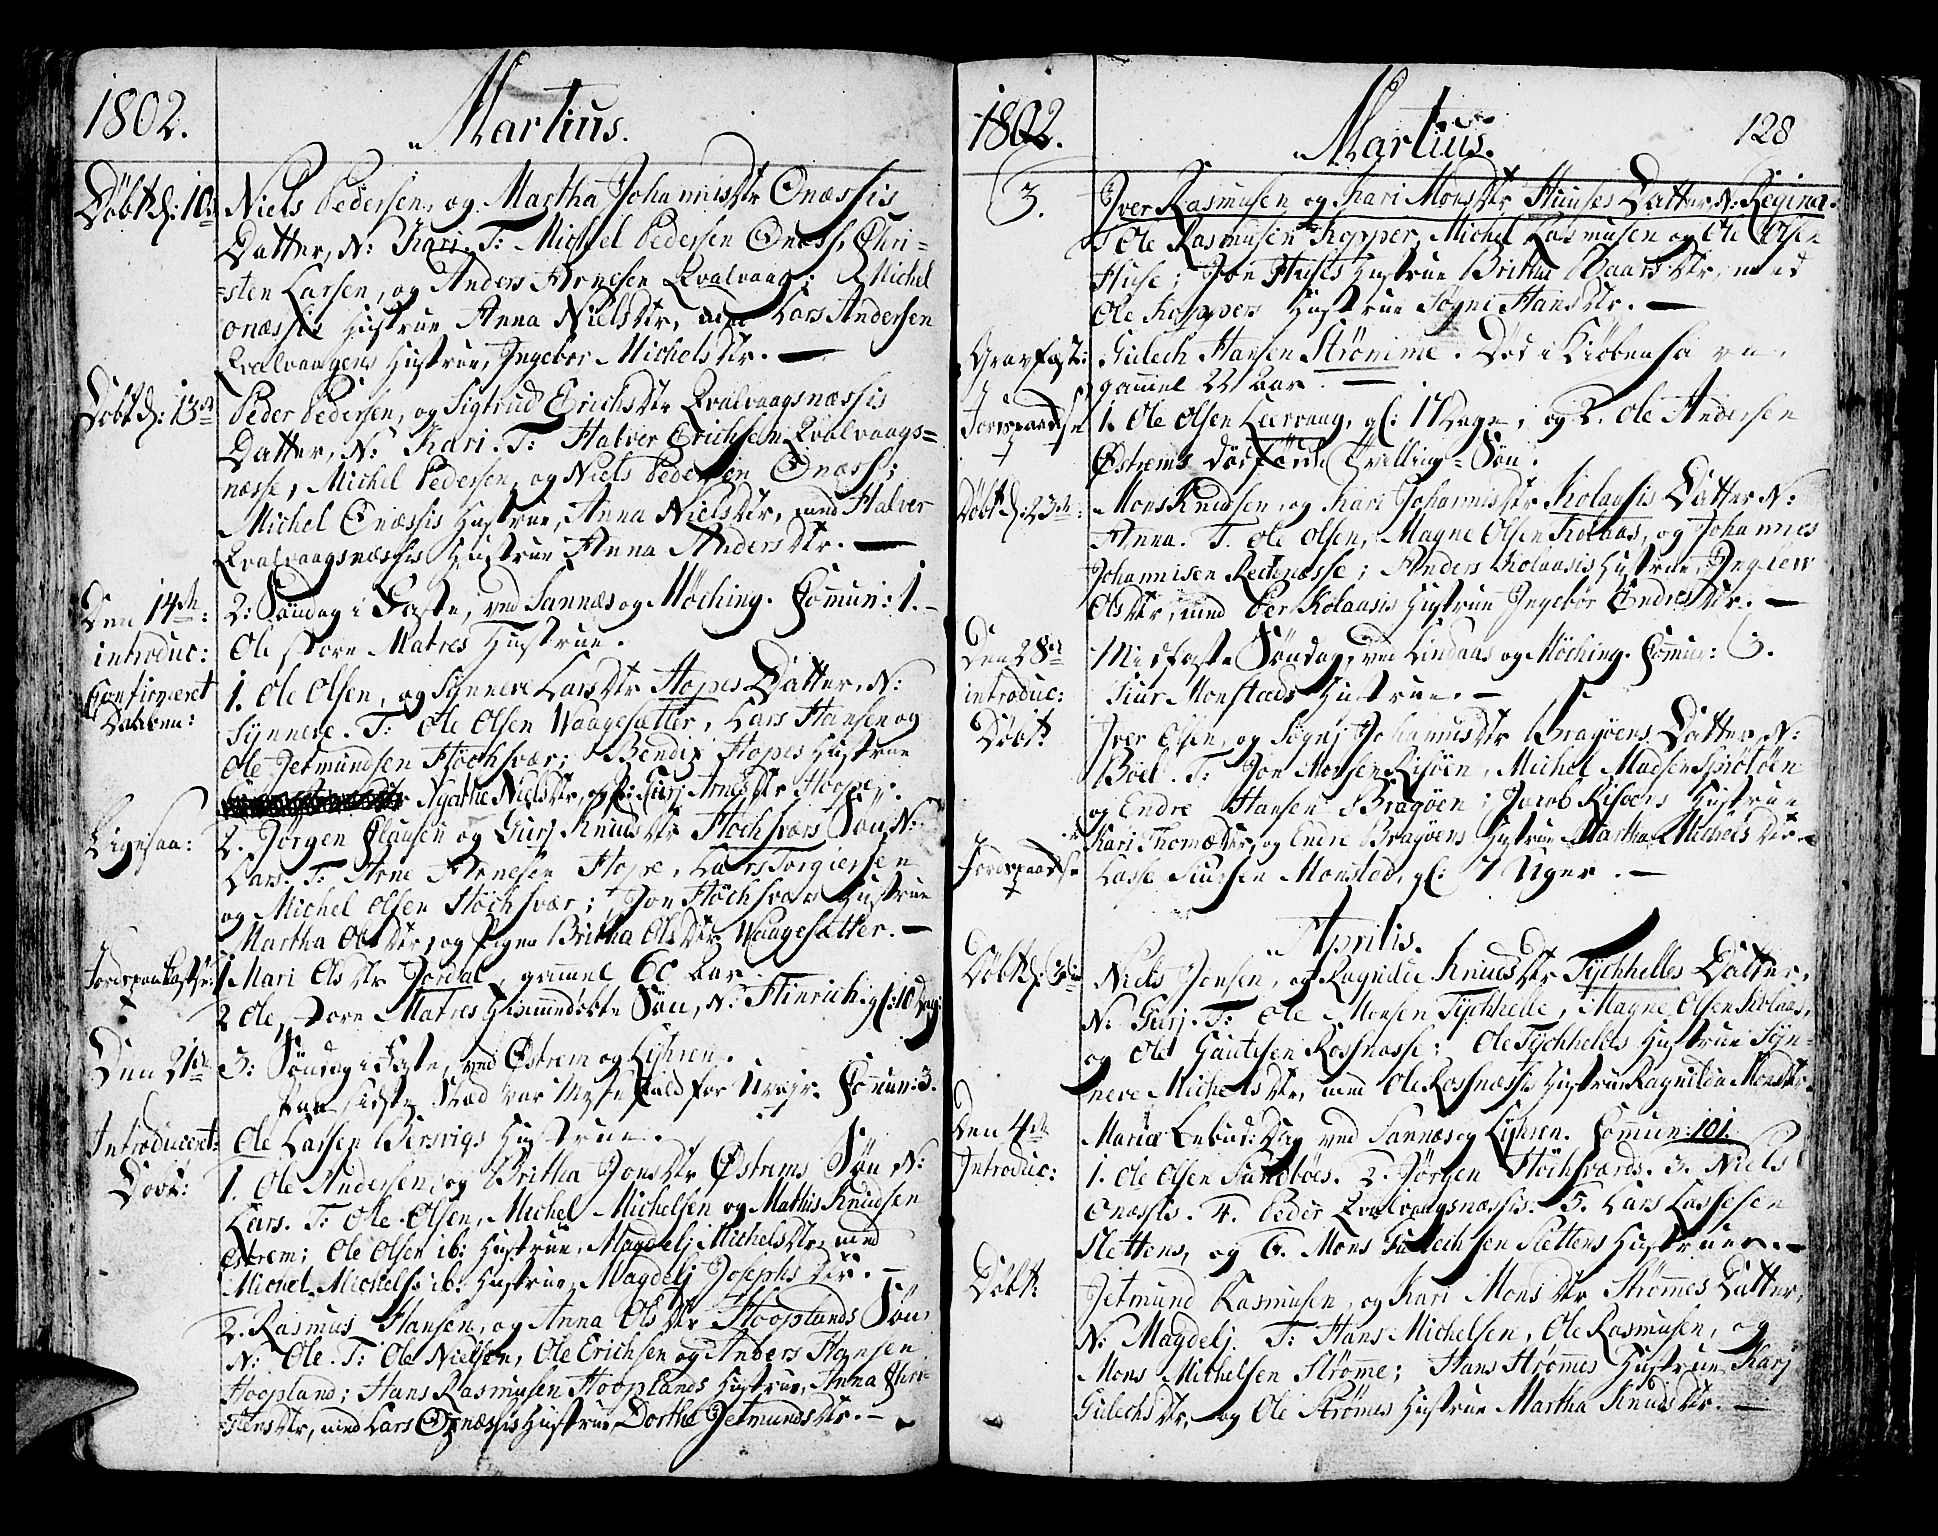 1802. Martius.
Döbt d: 10de Niels Pedersen, og Martha JohannisDtr Onæssis
Datter, N: Kari. T: Michel Pedersen Onæss, Chri-
sten Larsen, og Anders Arnesen Qvalvaag; Michel
onæssis Hustrue Anna NielsDtr, med Lars Andersen
Qvalvaagens Hustrue, Ingebor MichelsDtr. —
Döbt d: 13de Peder Pedersen, og Sigtrud ErichsDtr Qvalvaagsnæssis
Datter, N: Kari. T: Halver Erichsen Qvalvaags=
næsse, Michel Pedersen, og Niels Pedersen Onæss;
Michel Onæssis Hustrue, Anna NielsDtr, med Halver
Qvalvaagsnæssis Hustrue Anna AndersDtr. —
Den 14de: 2: Søndag i Faste, ved Sannæs og Möching. Comun: 1. —
introduc: Ole Matres Hustrue.
Confirmeret Daaben: 1. Ole Olsen, og Synneve LarsDtr Hopes Datter, N:
Synneve. T: Ole Olsen Waagesætter, Lars Hansen og
Ole Jetmundsen Höchsvær; Bendix Hopes Hustrue
Agathe NielsDtr, og P: Gurj ArnesDtr Hope.
Ligesaa: 2. Jörgen Clausen og Gurj KnudsDtr Höchsværs Søn N:
Lars. T: Arne Arnesen Hope, Lars Torgiersen
og Michel Olsen Höchsvær; Jon Höchsvær Hustrue
Martha OlsDtr, og Pigen Britha OlsDtr Waagesætter. —
Jordspaakastelse: 1 Mari OlsDtr Jordal, gammel 60 Aar
2 Ole Matres Hiemmedöbte Søn, N: Hinrich, gl: 10 Dag:
Den 21de 3: Søndag i Faste, ved Østrem og Lyhren.
Paa sidste Stæd var Messefald for Uvejr. Comun: 3.
Introduceret: Ole Larsen Bersvigs Hustrue.
Döbt: 1. Ole Andersen, og Britha JonsDtr Østrems Søn N:
Lars. T: Ole Olsen, Michel Michelsen og Mathis Knudsen
Østrem; Ole Olsen ib: Hustrue, Magdelj MichelsDtr, med
Michel Michels: ib: Hustrue, Magdelj JosephsDtr. —
2. Rasmus Hansen, og Anna OlsDtr Hooplands Søn,
N: Ole. T: Ole Nielsen, Ole Erichsen og Anders Hansen
Hoopland; Hans Rasmusen Hooplands Hustrue, Anna Chri-
stensDtr, med Lars Hustrue, Dorthe JetmundsDtr. —
1802. Martius. 128
3. Iver Rasmusen og Kari MonsDtr Huuses Datter N: Regina.
T Ole Rasmusen Kopper, Michel Rasmusen og Ole Olsen
Huse; Jon Huses Hustrue Britha BaarsDtr, med
Ole Koppers Hustrue Sögni HansDtr. —
Gravfæst: Gulech Hansen Strömme. Död i Kiöbenhavn,
gammel 22 Aar. —
Jordspaakastelse 1. Ole Olsen Leervaag, gl: 17 Dage, og 2. Ole Andersen
Østrems dödfödde Tvilling=Søn.
Döbt d: 23de: Mons Knudsen, og Kari JohannisDtr Kolaasis Datter N:
Anna. T. Ole Olsen, Magne Olsen Kolaas, og Johannes
Johannisen Rechnæsse; Anders Kolaasis Hustrue, Inglev
OlsDtr, med Per Kolaasis Hustrue Ingebor EndresDtr. —
Den 28de Midfaste Søndag, ved Lindaas og Möching. Comun: 3.
introduc: Siur Monstads Hustrue. —
Döbt: Iver Olsen, og Sögnj JohannisDtr Bragöens Datter, N:
Böel. T: Jon Monsen Risöen, Michel Madsen Sprötöen
og Endre Hansen Bragöen; Jacob Risöens Hustrue
Kari ThomæDtr, og Endre Bragöens Hustrue Martha MichelsDtr. —
Jordspaakastelse Lasse Siursen Monsted, gl: 7 Uger. —
Aprilis.
Döbt d: 3de: Niels Jensen, og Ragnilde KnudsDtr Tychhelles Datter,
N: Gurj. T: Ole Monsen Tychhelle, Magne Olsen Kolaas,
og Ole Gautesen Rossnæsse; Ole Tychhelles Hustrue Syn-
neve MichelsDtr, med Ole Rossnæssis Hustrue Ragnilda MonsDtr.
Den 4de Mariæ Bebud: Dag ved Sannæs og Lyhren. Comun: 101.
Introduc: 1. Ole Olsen Sundböes. 2. Jörgen Höchsværds. 3. Niels
Onæssis. 4. Peder Qvalvaagsnæssis. 5. Lars Lassesen
Slettens, og 6. Mons Gulechsen Slettens Hustruer. —
Döbt: Jetmund Rasmusen, og Kari MonsDtr Strömes Datter,
N: Magdelj. T: Hans Michelsen, Ole Rasmusen, og
Mons Michelsen Strömme; Hans Strömmes Hustrue, Karj
GulechsDtr, og Ole Strömes Hustrue Martha KnudsDtr. —